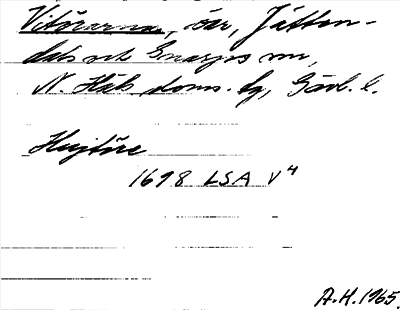 Vitörarna, öar, Jätten-
dals och Gnarps sn,
N. Häls. doms. bg, Gävl. l.
Huijtöre
1698 LSA V4
A.H. 1965.